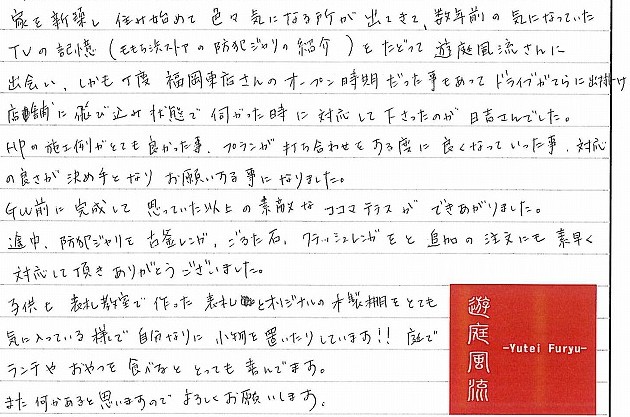 家を新築し 住み始めて 色々気になる所が出てきて、数年前の気になっていた
TVの記憶(ももち浜ストアの防犯ジャリの紹介)をたどって遊庭風流さんに
出会い、しかも丁度 福岡東店さんのオープン時期だった事もあって ドライブがてらに出掛け
店舗に飛び込み状態で伺った時に対応して下さったのが日吉さんでした。
HPの施工例がとても良かった事、プランが打ち合わせをする度に良くなっていった事、対応
の良さが決め手となり お願いする事になりました。
GW前に完成して 思っていた以上の素敵な ココマテラスが できあがりました。
途中、防犯ジャリを古釜レンガ、ごろた石、クラッシュレンガをと追加の注文にも素早く
対応して頂きありがとうございました。
子供も 表札教室で作った 表札とオリジナルの木製棚をとても
気に入っている様で自分なりに 小物を置いたりしています!! 庭で
ランチや おやつを食べるととっても喜んでます。
また何かあると思いますので よろしくお願いします。
遊庭風流
-Yutei Furyu-